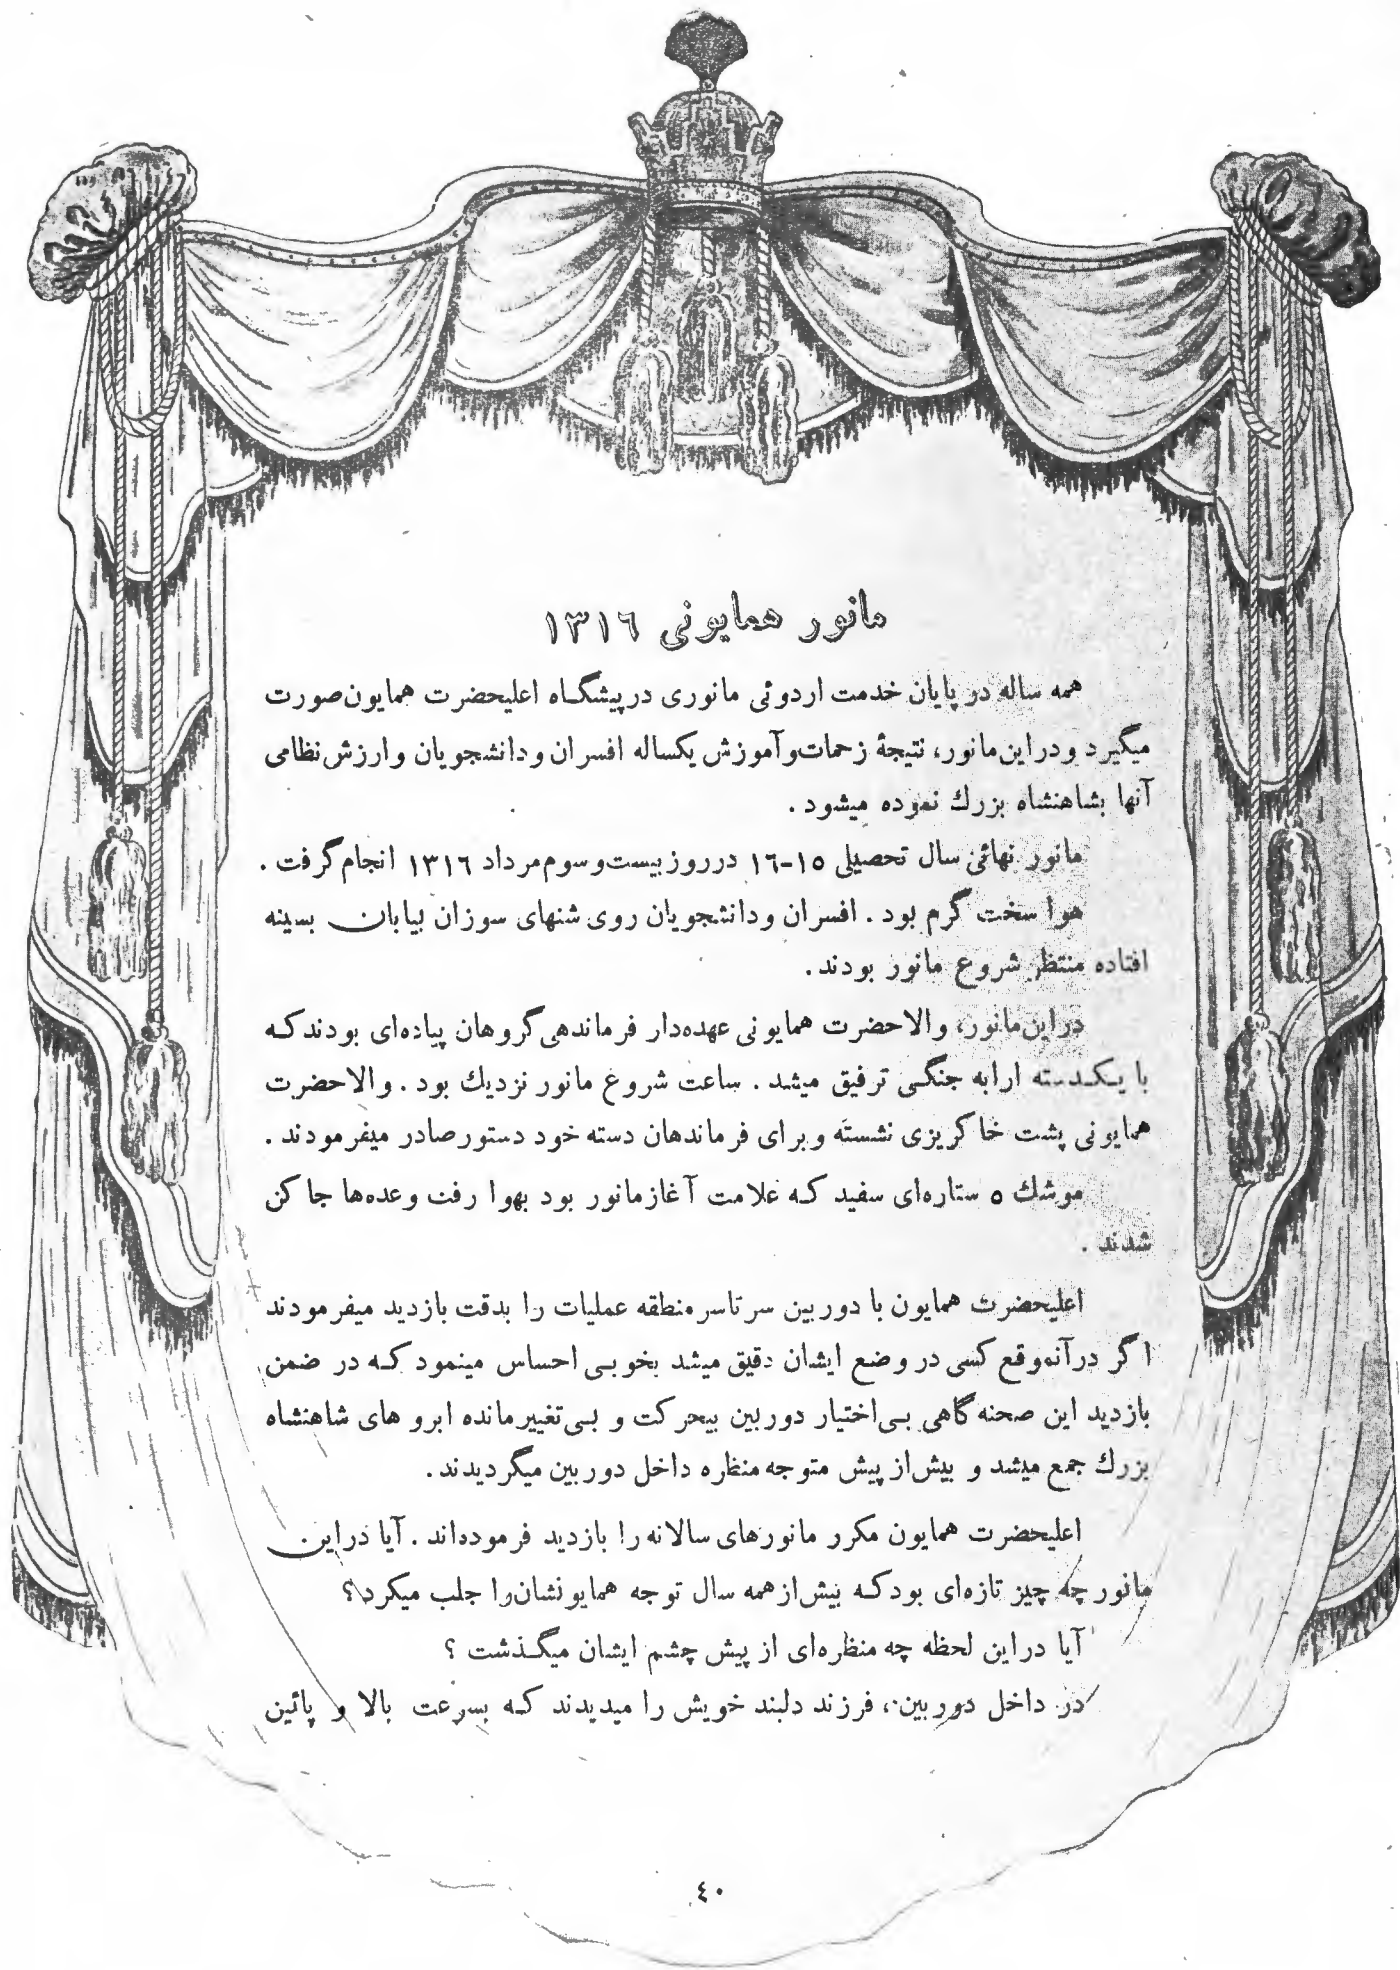 مانور همایونی ۱۳۱۶
همه ساله در پایان خدمت اردوئی مانوری درپیشگاه اعلیحضرت همایون صورت
میگیرد و دراین مانور، نتیجهٔ زحمات و آموزش یکساله افسران و دانشجویان و ارزش نظامی
آنها بشاهنشاه بزرك نموده میشود .
مانور نهائی سال تحصیلی ۱۵-۱۶ درروز بیست و سوم مرداد ۱۳۱۶ انجام گرفت .
هوا سخت گرم بود . افسران و دانشجویان روی شنهای سوزان بیابان بسینه
افتاده منتظر شروع مانور بودند .
دراین مانور، والاحضرت همایونی عهده‌دار فرماندهی گروهان پیاده‌ای بودند که
با یکدسته ارابه جنگی ترفیق میشد . ساعت شروع مانور نزدیك بود . والاحضرت
همایونی پشت خاکریزی نشسته و برای فرماندهان دسته خود دستور صادر میفرمودند .
موشك ۵ ستاره‌ای سفید که علامت آغاز مانور بود بهوا رفت و عده‌ها جا کن
شدند .
اعلیحضرت همایون با دوربین سرتاسر منطقه عملیات را بدقت بازدید میفرمودند
اگر درآنموقع کسی در وضع ایشان دقیق میشد بخوبی احساس مینمود که در ضمن
بازدید این صحنه گاهی بی‌اختیار دوربین بیحرکت و بی‌تغییر مانده ابرو های شاهنشاه
بزرك جمع میشد و بیش از پیش متوجه منظره داخل دوربین میگردیدند .
اعلیحضرت همایون مکرر مانورهای سالانه را بازدید فرموده‌اند . آیا دراین
مانور چه چیز تازه‌ای بود که بیش از همه سال توجه همایونشان را جلب میکرد ؟
آیا دراین لحظه چه منظره‌ای از پیش چشم ایشان میگذشت ؟
در داخل دوربین ، فرزند دلبند خویش را میدیدند که بسرعت بالا و پائین
٤٠